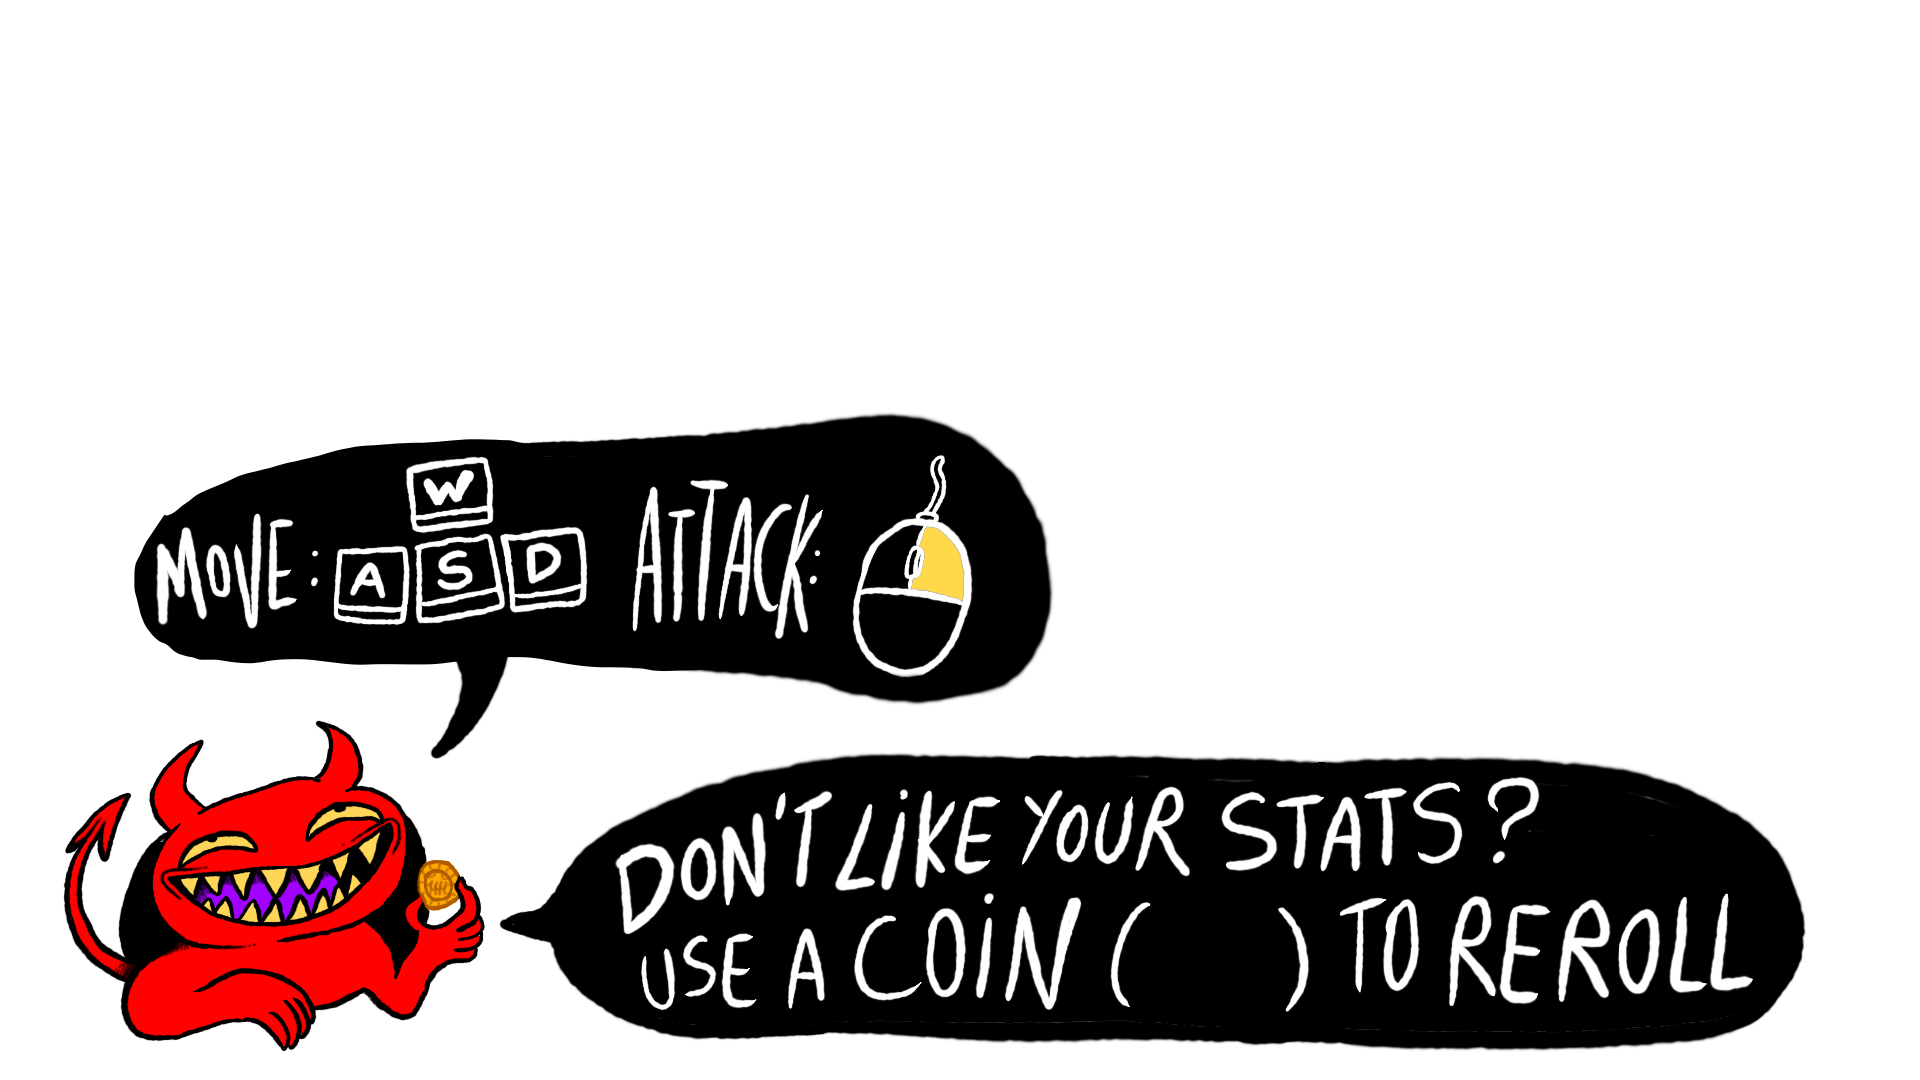 MOVE: W ATTACK:
A S D
DON'T LIKE YOUR STATS?
USE A COIN ( ) TO REROLL